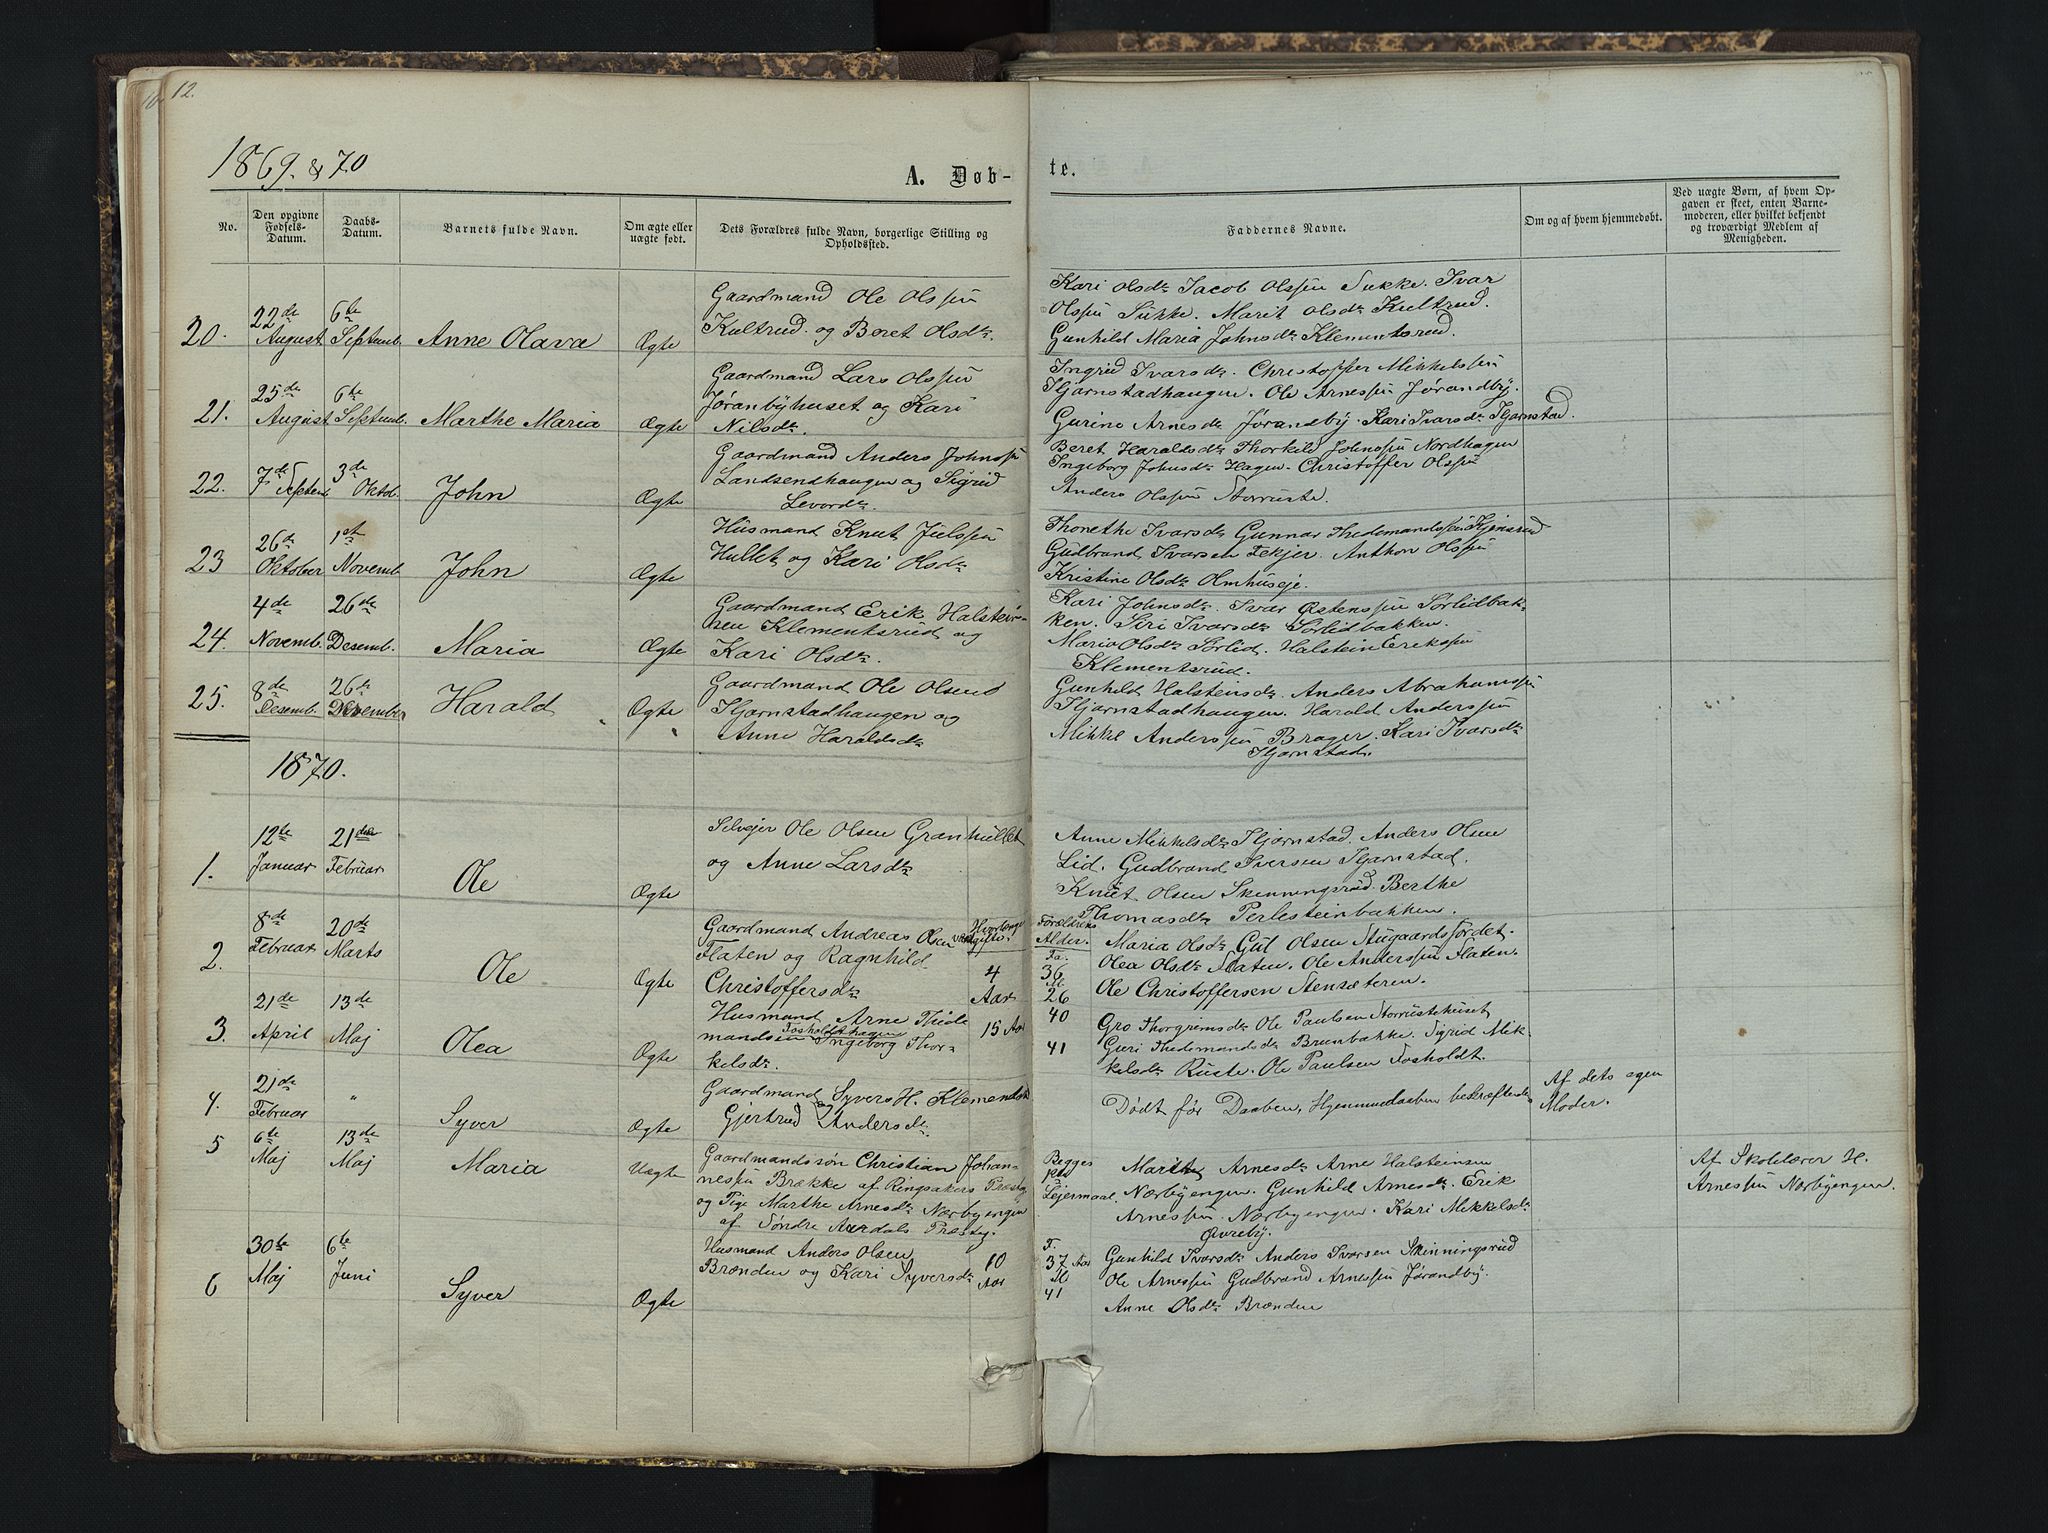 12.
1869. & 70
A. Døb-
te.
No.
Den opgivne Fødsels-Datum.
Daabs-Datum.
Barnets fulde Navn.
Om ægte eller uægte født.
Dets Forældres fulde Navn, borgerlige Stilling og Opholdssted.
Faddernes Navne.
Om og af hvem hjemmedøbt.
Ved uægte Børn, af hvem Op-
gaven er skeet, enten Barne-
moderen, eller hvilket bekjendt
og troværdigt Medlem af
Menigheden.
20.
22de August
6te Septemb.
Anne Olava
Ægte
Gaardmand Ole Olssøn
Kultrud. og Beret Olsdr.
Kari Olsdr. Jacob Olssøn Sukke. Ivar
Olssøn Sukke. Marit Olsdr. Kultrud.
Gunhild Maria Johnsdr. Klementsrud.
21.
25de August
6te Septemb.
Marthe Maria
Ægte
Gaardmand Lars Olssøn
Jøranbyhuset og Kari
Nilsdr.
Ingrid Ivarsdr. Christoffer Mikkelssøn
Hjarnstadhaugen. Ole Arnessøn Jørandby.
Gurine Arnesdr. Jørandby. Kari Ivarsdr. Hjarnstad.
22.
7de Septemb
3de Oktob.
John
Ægte
Gaardmand Anders Johnssøn
Landsendhaugen og Sigrid
Levordr.
Beret Haraldsdr. Thorkild Johnssøn Nordhagen
Ingeborg Johnsdr. Hagen. Christoffer Olssøn
Anders Olssøn Storruste.
23
26de Oktober
1st Novemb.
John
Ægte
Husmand Knut Juelssøn
Hullet og Kari Olsdr.
Thonethe Ivarsdr. Gunnar Thedemandssøn
Gudbrand Ivarsen Tekjer. Anthon Olssøn
Kristine Olsdr. Olmhuseje.
24.
4de Novemb.
26de Desemb.
Maria
Ægte
Gaardmand Erik Halstein-
sen Klementsrud og
Kari Olsdr.
Kari Johnsdr. Ivar Østenssøn Sørlidbak-
ken. Siri Ivarsdr. Sørlidbakken.
Maria Olsdr. Sørlid. Halstein Erikssøn
Klementsrud.
25.
8de Desemb.
26de
Harald
Ægte
Gaardmand Ole Olsen
Hjarnstadhaugen og
Anne Haraldsdr.
Gunhild Halsteinsdr. Anders Abrahamssøn
Hjarnstadhaugen. Harald Anderssøn
Mikkel Anderssøn Brager. Kari Ivarsdr.
Hjarnstad.
1870.
1.
12te Januar
21de Februar
Ole
Ægte
Selvejer Ole Olsen Granhullet
og Anne Larsdr.
Anne Mikkelsdr. Hjarnstad. Anders Olsen
Lid. Gudbrand Iversen Hjarnstad.
Knut Olsen Skinningsrud. Berthe
Thomasdr. Perlesteinbakken.
2.
8de Februar
20de Marts
Ole
Ægte
Gaardmand Andreas Olsen
Flaten og Ragnhild
Christoffersdr.
Hvorlænge
været gifte.
4
Aar
Forældrens
Alder.
Fa.
36
M
26
Maria Olsdr. Gul Olsen Stugaardsjordet.
Olea Olsdr. Flaten. Ole Anderssøn Flaten.
Ole Christoffersen Stensæteren.
3.
21de April
13de Maj
Olea
Ægte
Husmand Arne Thide
mandsen Fosholdthagen Ingeborg Thor-
kelsdr.
15 Aar
40
41
Gro Thorgremsdr. Ole Paulsen Storrustehuset
Guri Thedemandsdr. Brunbakke. Sigrid Mik-
kelsdr. Ruste. Ole Paulsen Fosholdt.
4.
21de Februar
"
Syver
Ægte
Gaardmand Syver H. Klemendsr
og Gjertrud Andersdr.
Dødt før Daaben, Hjemmedaaben bekræftedes
Af dets egen
Moder.
5
6te Maj
13de Maj
Maria
Uægte
Gaardmandssøn Christian Johan-
nessøn Brække af Ringsakers Præstg.
og Pige Marthe Arnesdr. Nærbyengen
af Søndre Aurdals Præstg.
Begges
1ste
Lejermaal.
Marithe Arnesdr. Arne Halsteinsen
Nærbyengen. Gunhild Arnesdr. Erik
Arnessøn Nærbyengen. Kari Mikkelsdr.
Øvreby.
Af Skolelærer H.
Arnessøn Nærbyengen.
6
30te Maj
6te Juni
Syver
Ægte
Husmand Anders Olsen
Brænden og Kari Syversdr.
10
Aar
F.
37 Aar
M
41
Gunhild Ivarsdr. Anders Ivarsen Skinningsrud
Ole Arnessøn Gudbrand Arnessøn Jørandby.
Anne Olsdr. Brænden